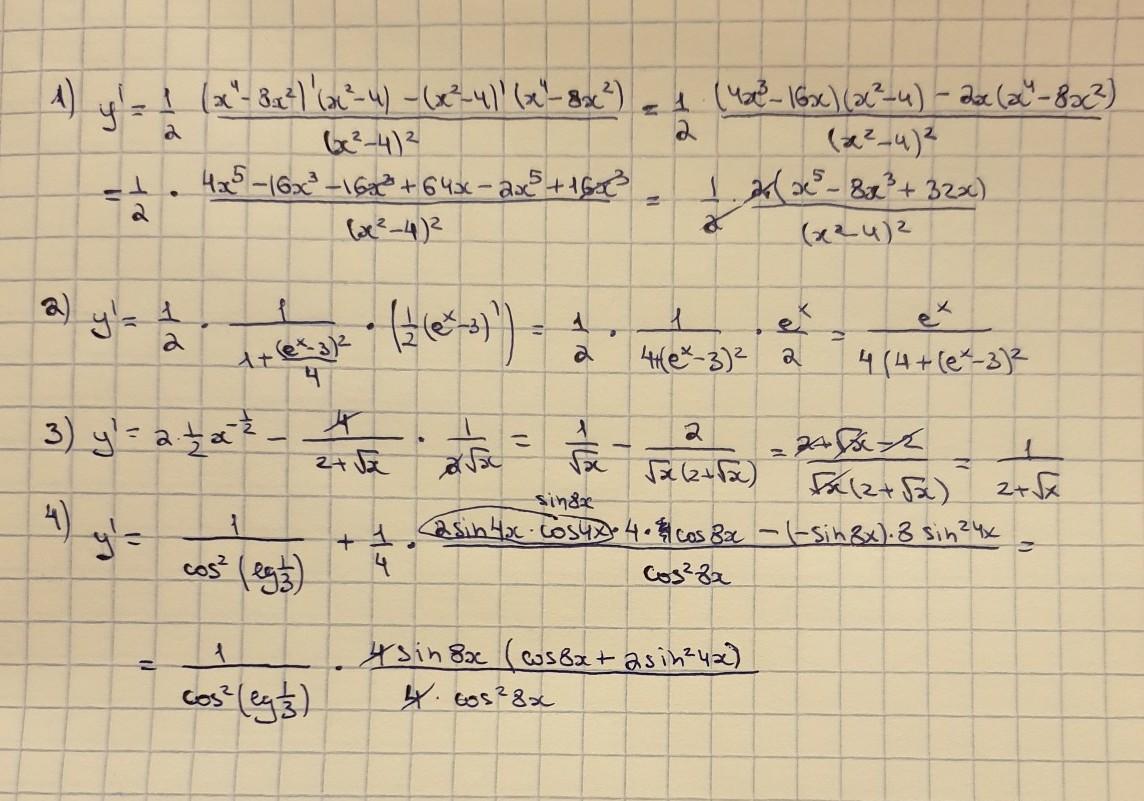 1) y' = 1/2 (x⁴-8x²)'(x²-4) - (x²-4)'(x⁴-8x²) / (x²-4)² = 1/2 · (4x³-16x)(x²-4) - 2x(x⁴-8x²) / (x²-4)²
= 1/2 · 4x⁵-16x³-16x³+64x-2x⁵+16x³ / (x²-4)² = 1/2 · 2(x⁵-8x³+32x) / (x²-4)²
2) y' = 1/2 · 1 / 1+(eˣ-3)²/4 · (1/2(eˣ-3)') = 1/2 · 1 / 4+(eˣ-3)² · eˣ/2 = eˣ / 4(4+(eˣ-3)²
3) y' = 2·1/2 x^(-1/2) - 4 / 2+√x · 1 / 2√x = 1/√x - 2 / √x(2+√x) = 2+√x-2 / √x(2+√x) = 1 / 2+√x
sin8x
4) y' = 1 / cos²(lg 1/3) + 1/4 · 2sin4x·cos4x·4·cos8x - (-sin8x)·8 sin²4x / cos²8x =
= 1 / cos²(lg 1/3) · 4sin8x (cos8x+2sin²4x) / 4·cos²8x